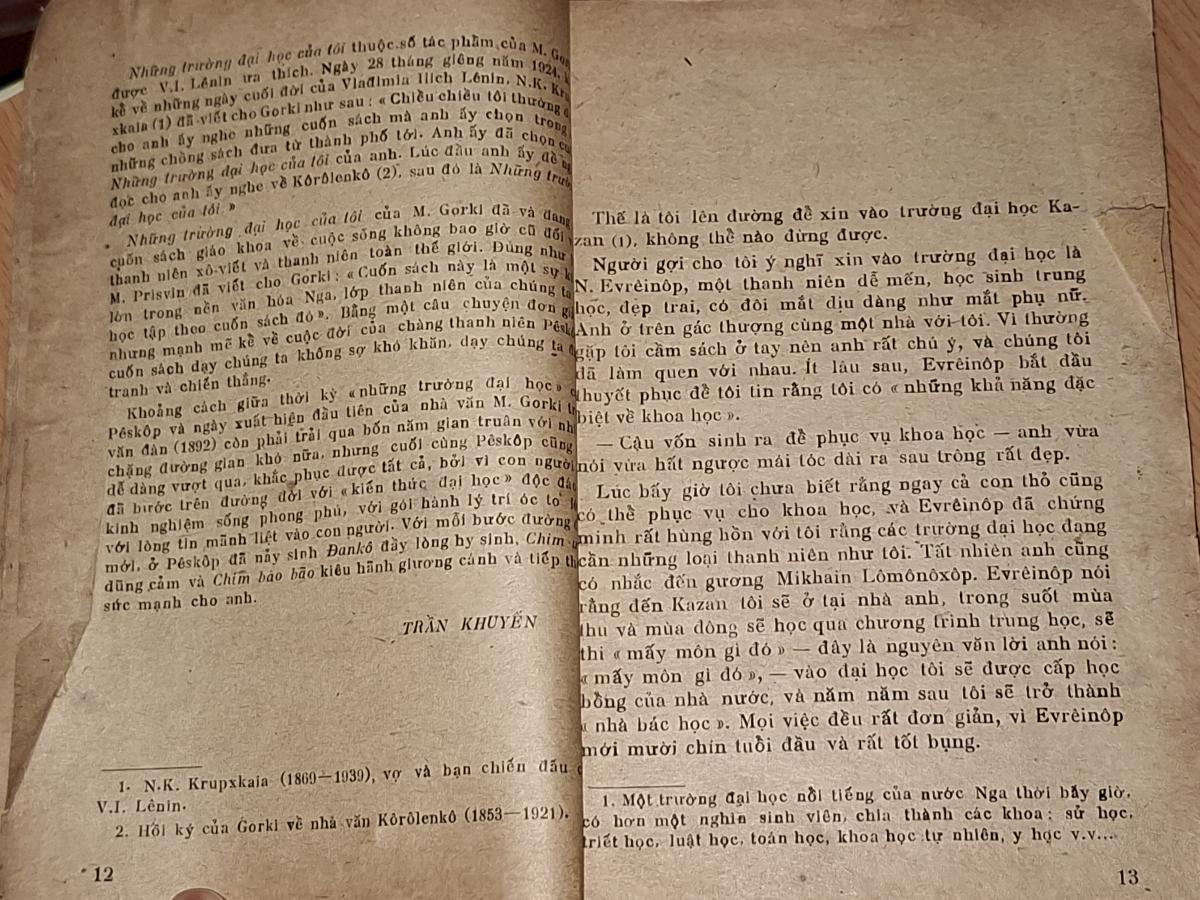 Những trường đại học của tôi thuộc số tác phẩm của M. Go
được V.I. Lênin ưa thích. Ngày 28 tháng giêng năm 1924,
kể về những ngày cuối đời của Vlađimia Ilich Lênin, N.K. Kru
xkaia (1) đã viết cho Gorki như sau : « Chiều chiều tôi thường
cho anh ấy nghe những cuốn sách mà anh ấy chọn trong
những chồng sách đưa từ thành phố tới. Anh ấy đã chọn
Những trường đại học của tôi của anh. Lúc đầu anh ấy đề
đọc cho anh ấy nghe về Kôrôlenkô (2), sau đó là Những trườ
đại học của tôi. »
Những trường đại học của tôi của M. Gorki đã và đang
cuốn sách giáo khoa về cuộc sống không bao giờ cũ đối
thanh niên xô-viết và thanh niên toàn thế giới. Đúng như
M. Prisvin đã viết cho Gorki : « Cuốn sách này là một sự k
lớn trong nền văn hóa Nga, lớp thanh niên của chúng ta
học tập theo cuốn sách đó ». Bằng một câu chuyện đơn gi
nhưng mạnh mẽ kể về cuộc đời của chàng thanh niên Pêsk
cuốn sách dạy chúng ta không sợ khó khăn, dạy chúng ta
tranh và chiến thắng.
Khoảng cách giữa thời kỳ « những trường đại học »
Pêskôp và ngày xuất hiện đầu tiên của nhà văn M. Gorki t
văn đàn (1892) còn phải trải qua bốn năm gian truân với nh
chặng đường gian khó nữa, nhưng cuối cùng Pêskôp cũng
dễ dàng vượt qua, khắc phục được tất cả, bởi vì con người
đã bước trên đường đời với « kiến thức đại học » độc đá
kinh nghiệm sống phong phú, với gói hành lý trí óc to l
với lòng tin mãnh liệt vào con người. Với mỗi bước đường
mới, ở Pêskôp đã nảy sinh Đankô đầy lòng hy sinh, Chim
dũng cảm và Chim báo bão kiêu hãnh giương cánh và tiếp th
sức mạnh cho anh.
TRẦN KHUYẾN
1. N.K. Krupxkaia (1869—1939), vợ và bạn chiến đấu
V.I. Lênin.
2. Hồi ký của Gorki về nhà văn Kôrôlenkô (1853—1921).
12
Thế là tôi lên đường để xin vào trường đại học Ka-
zan (1), không thể nào dừng được.
Người gợi cho tôi ý nghĩ xin vào trường đại học là
N. Evrêinôp, một thanh niên dễ mến, học sinh trung
học, đẹp trai, có đôi mắt dịu dàng như mắt phụ nữ.
Anh ở trên gác thượng cùng một nhà với tôi. Vì thường
gặp tôi cầm sách ở tay nên anh rất chú ý, và chúng tôi
đã làm quen với nhau. Ít lâu sau, Evrêinôp bắt đầu
thuyết phục để tôi tin rằng tôi có « những khả năng đặc
biệt về khoa học ».
— Cậu vốn sinh ra để phục vụ khoa học — anh vừa
nói vừa hất ngược mái tóc dài ra sau trông rất đẹp.
Lúc bấy giờ tôi chưa biết rằng ngay cả con thỏ cũng
có thể phục vụ cho khoa học, và Evrêinôp đã chứng
minh rất hùng hồn với tôi rằng các trường đại học đang
cần những loại thanh niên như tôi. Tất nhiên anh cũng
có nhắc đến gương Mikhain Lômônôxôp. Evrêinôp nói
rằng đến Kazan tôi sẽ ở tại nhà anh, trong suốt mùa
thu và mùa đông sẽ học qua chương trình trung học, sẽ
thi « mấy môn gì đó » — đây là nguyên văn lời anh nói :
« mấy môn gì đó », — vào đại học tôi sẽ được cấp học
bổng của nhà nước, và năm năm sau tôi sẽ trở thành
« nhà bác học ». Mọi việc đều rất đơn giản, vì Evrêinôp
mới mười chín tuổi đầu và rất tốt bụng.
1. Một trường đại học nổi tiếng của nước Nga thời bấy giờ,
có hơn một nghìn sinh viên, chia thành các khoa : sử học,
triết học, luật học, toán học, khoa học tự nhiên, y học v.v...
13